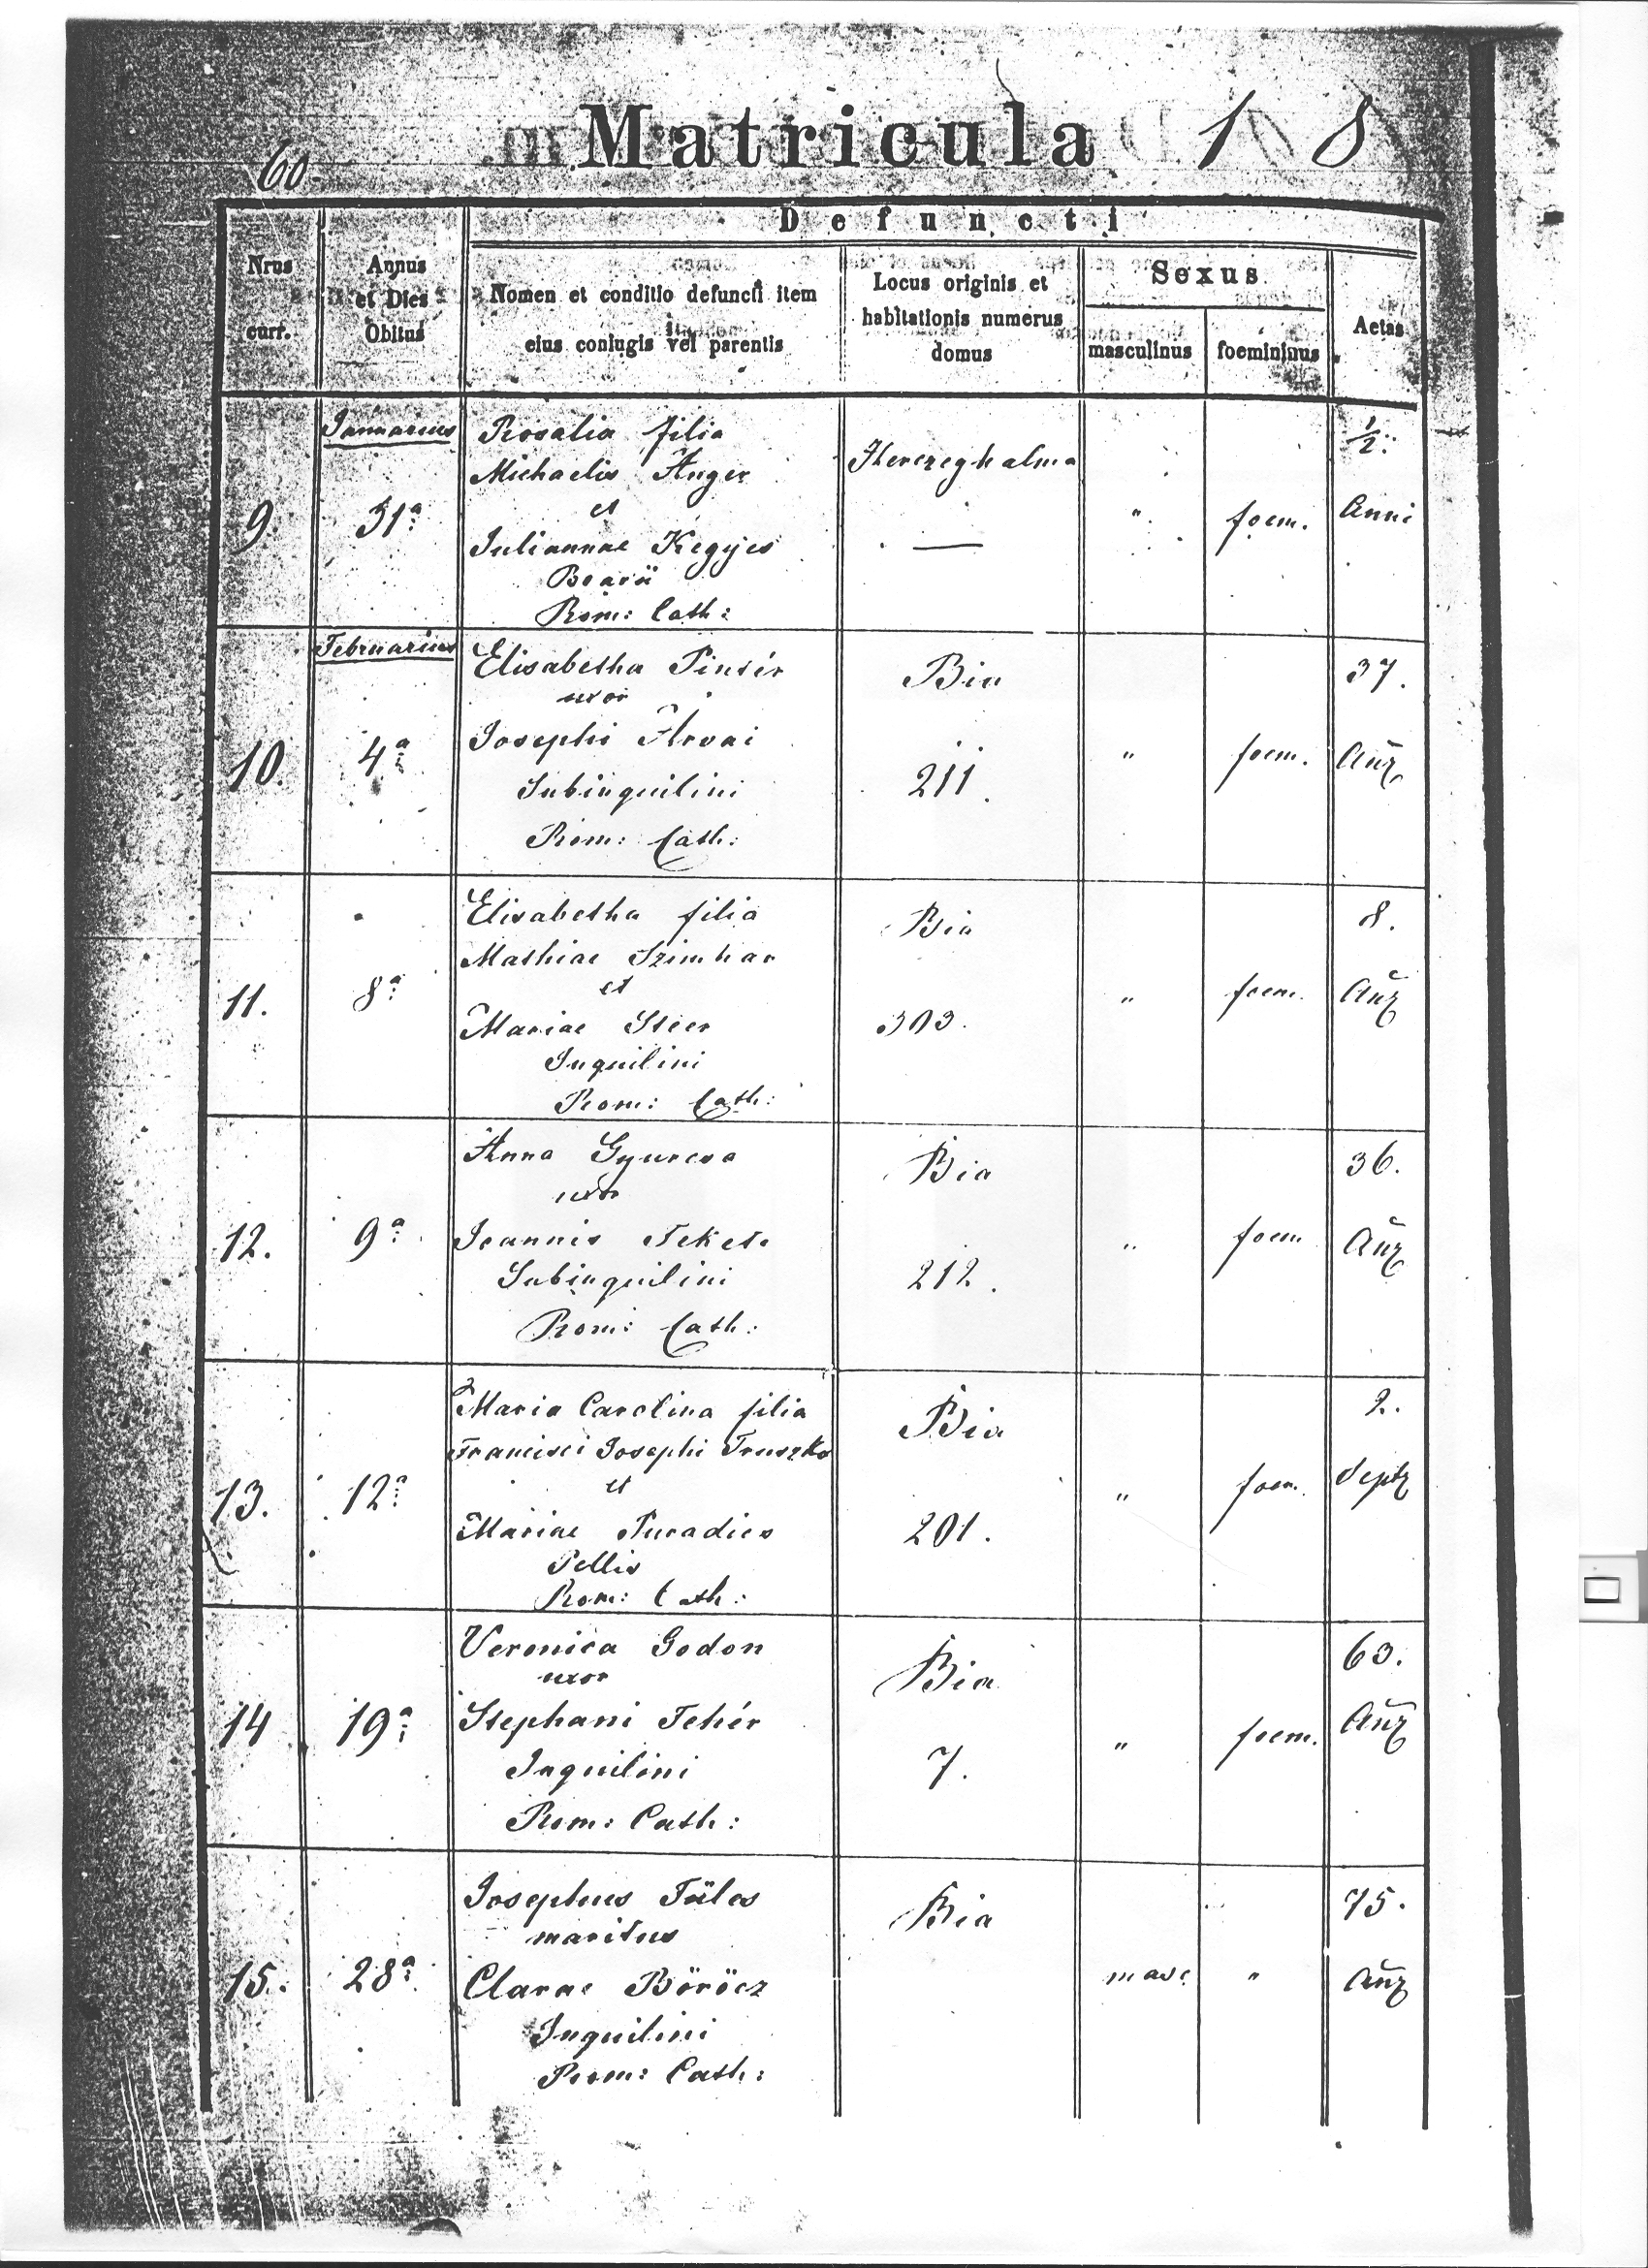 60.
Matricula 1 8
Defuncti
Nrus curr.
Annus et Dies Obitus
Nomen et conditio defuncti item eius coniugis vel parentis
Locus originis et habitationis numerus domus
Sexus
masculinus
foemininus
Aetas
Januarius
9. 31a
Rosalia filia
Michaelis Anger
et
Juliannae Kegyes
Boarii
Rom: Cath:
Herczeghalma
—
" foem.
1/2
Anni
Februarius
10. 4a
Elisabetha Pintér
uxor
Josephi Árvai
Subinquilini
Rom: Cath:
Bia
211.
" foem.
37.
11. 8a
Elisabetha filia
Mathiae
et
Mariae
Inquilini
Rom: Cath:
Bia
303.
" foem.
8.
12. 9a
Anna Gyurcsa
uxor
Joannis Fekete
Subinquilini
Rom: Cath:
Bia
212.
" foem
36.
13. 12a
Maria Carolina filia
Francisci Josephi
et
Mariae
Rom: Cath:
Bia
201.
" foem.
2.
14 19a
Veronica Godon
uxor
Stephani Fehér
Inquilini
Rom: Cath:
Bia
7.
" foem.
63.
15. 28a
Josephus
maritus
Clarae Böröcz
Inquilini
Rom: Cath:
Bia
masc "
75.